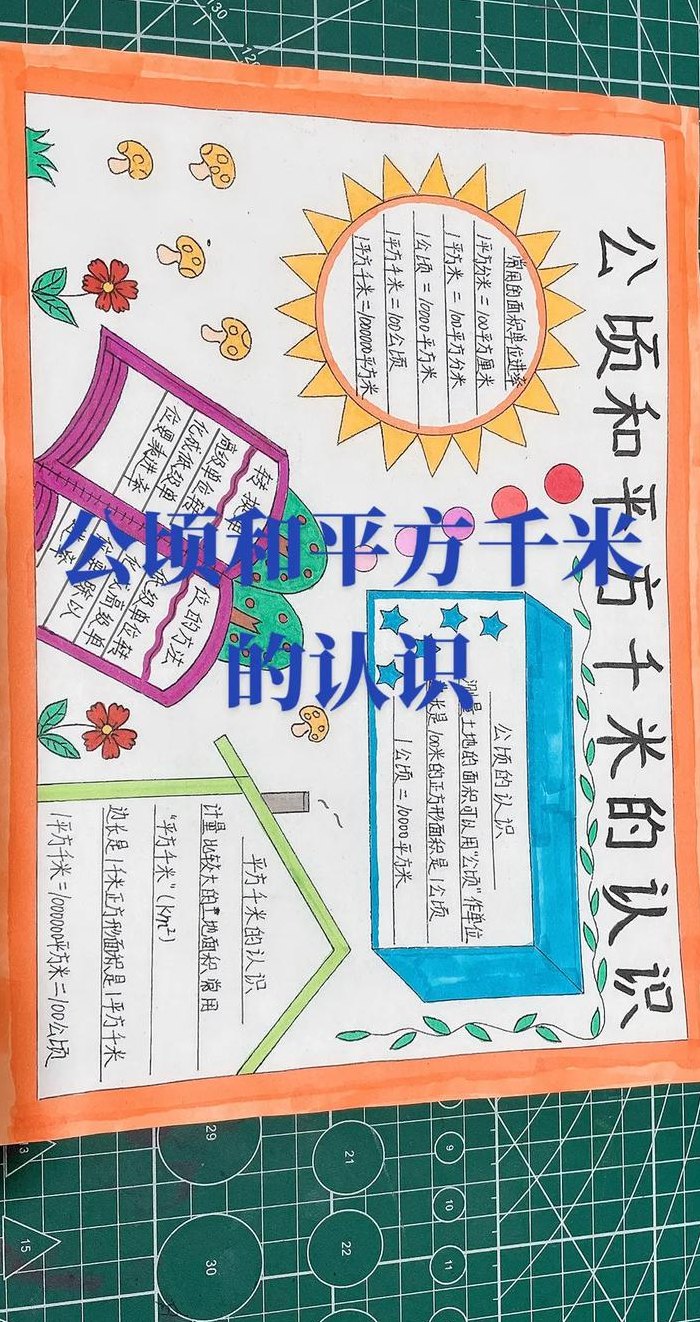 公顷和平方千米的认识
公顷和平方千米
的认识
常用的面积单位进率
1平方分米=100平方厘米
1平方米=100平方分米
1公顷=10000平方米
1平方千米=100公顷
1平方千米=1000000平方米
高级单位转
化成低级单
位要乘进率
位的方法
公顷的认识
测量土地的面积可以用"公顷"作单位
边长是100米的正方形面积是1公顷
1公顷=10000平方米
平方千米的认识
计量比较大的土地面积常用
"平方千米"(km²)
边长是1千米正方形面积是1平方千米
1平方千米=1000000平方米=100公顷
130
120
29
21
9
10
22
11
30
15